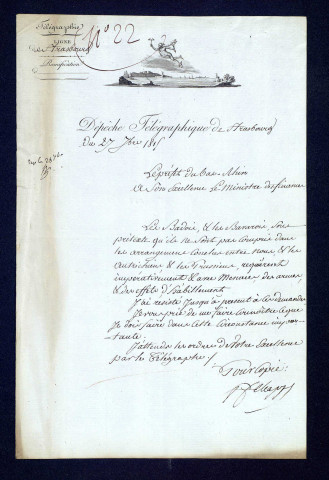 Télégraphie
LIGNE
de Strasbourg
N° 22
Dépêche Télégraphique de Strasbourg
du 27 7bre 1815
Le préfet du Bas-Rhin
à Son Excellence le Ministre des finances
Les Badois, & les Bavarois, sous
prétexte qu'ils ne sont pas compris dans
les arrangements conclus entre nous & les
Autrichiens & les Prussiens, requièrent
impérativement d'anes Monnier des armes,
& des effets d'habillement.
J'ai résisté jusqu'à présent à ces demandes
Je vous prie de me faire connaître ce que
je dois faire dans cette Circonstance impor-
tante.
J'attends les ordres de Votre Excellence
par le Télégraphe
Pour Copie :